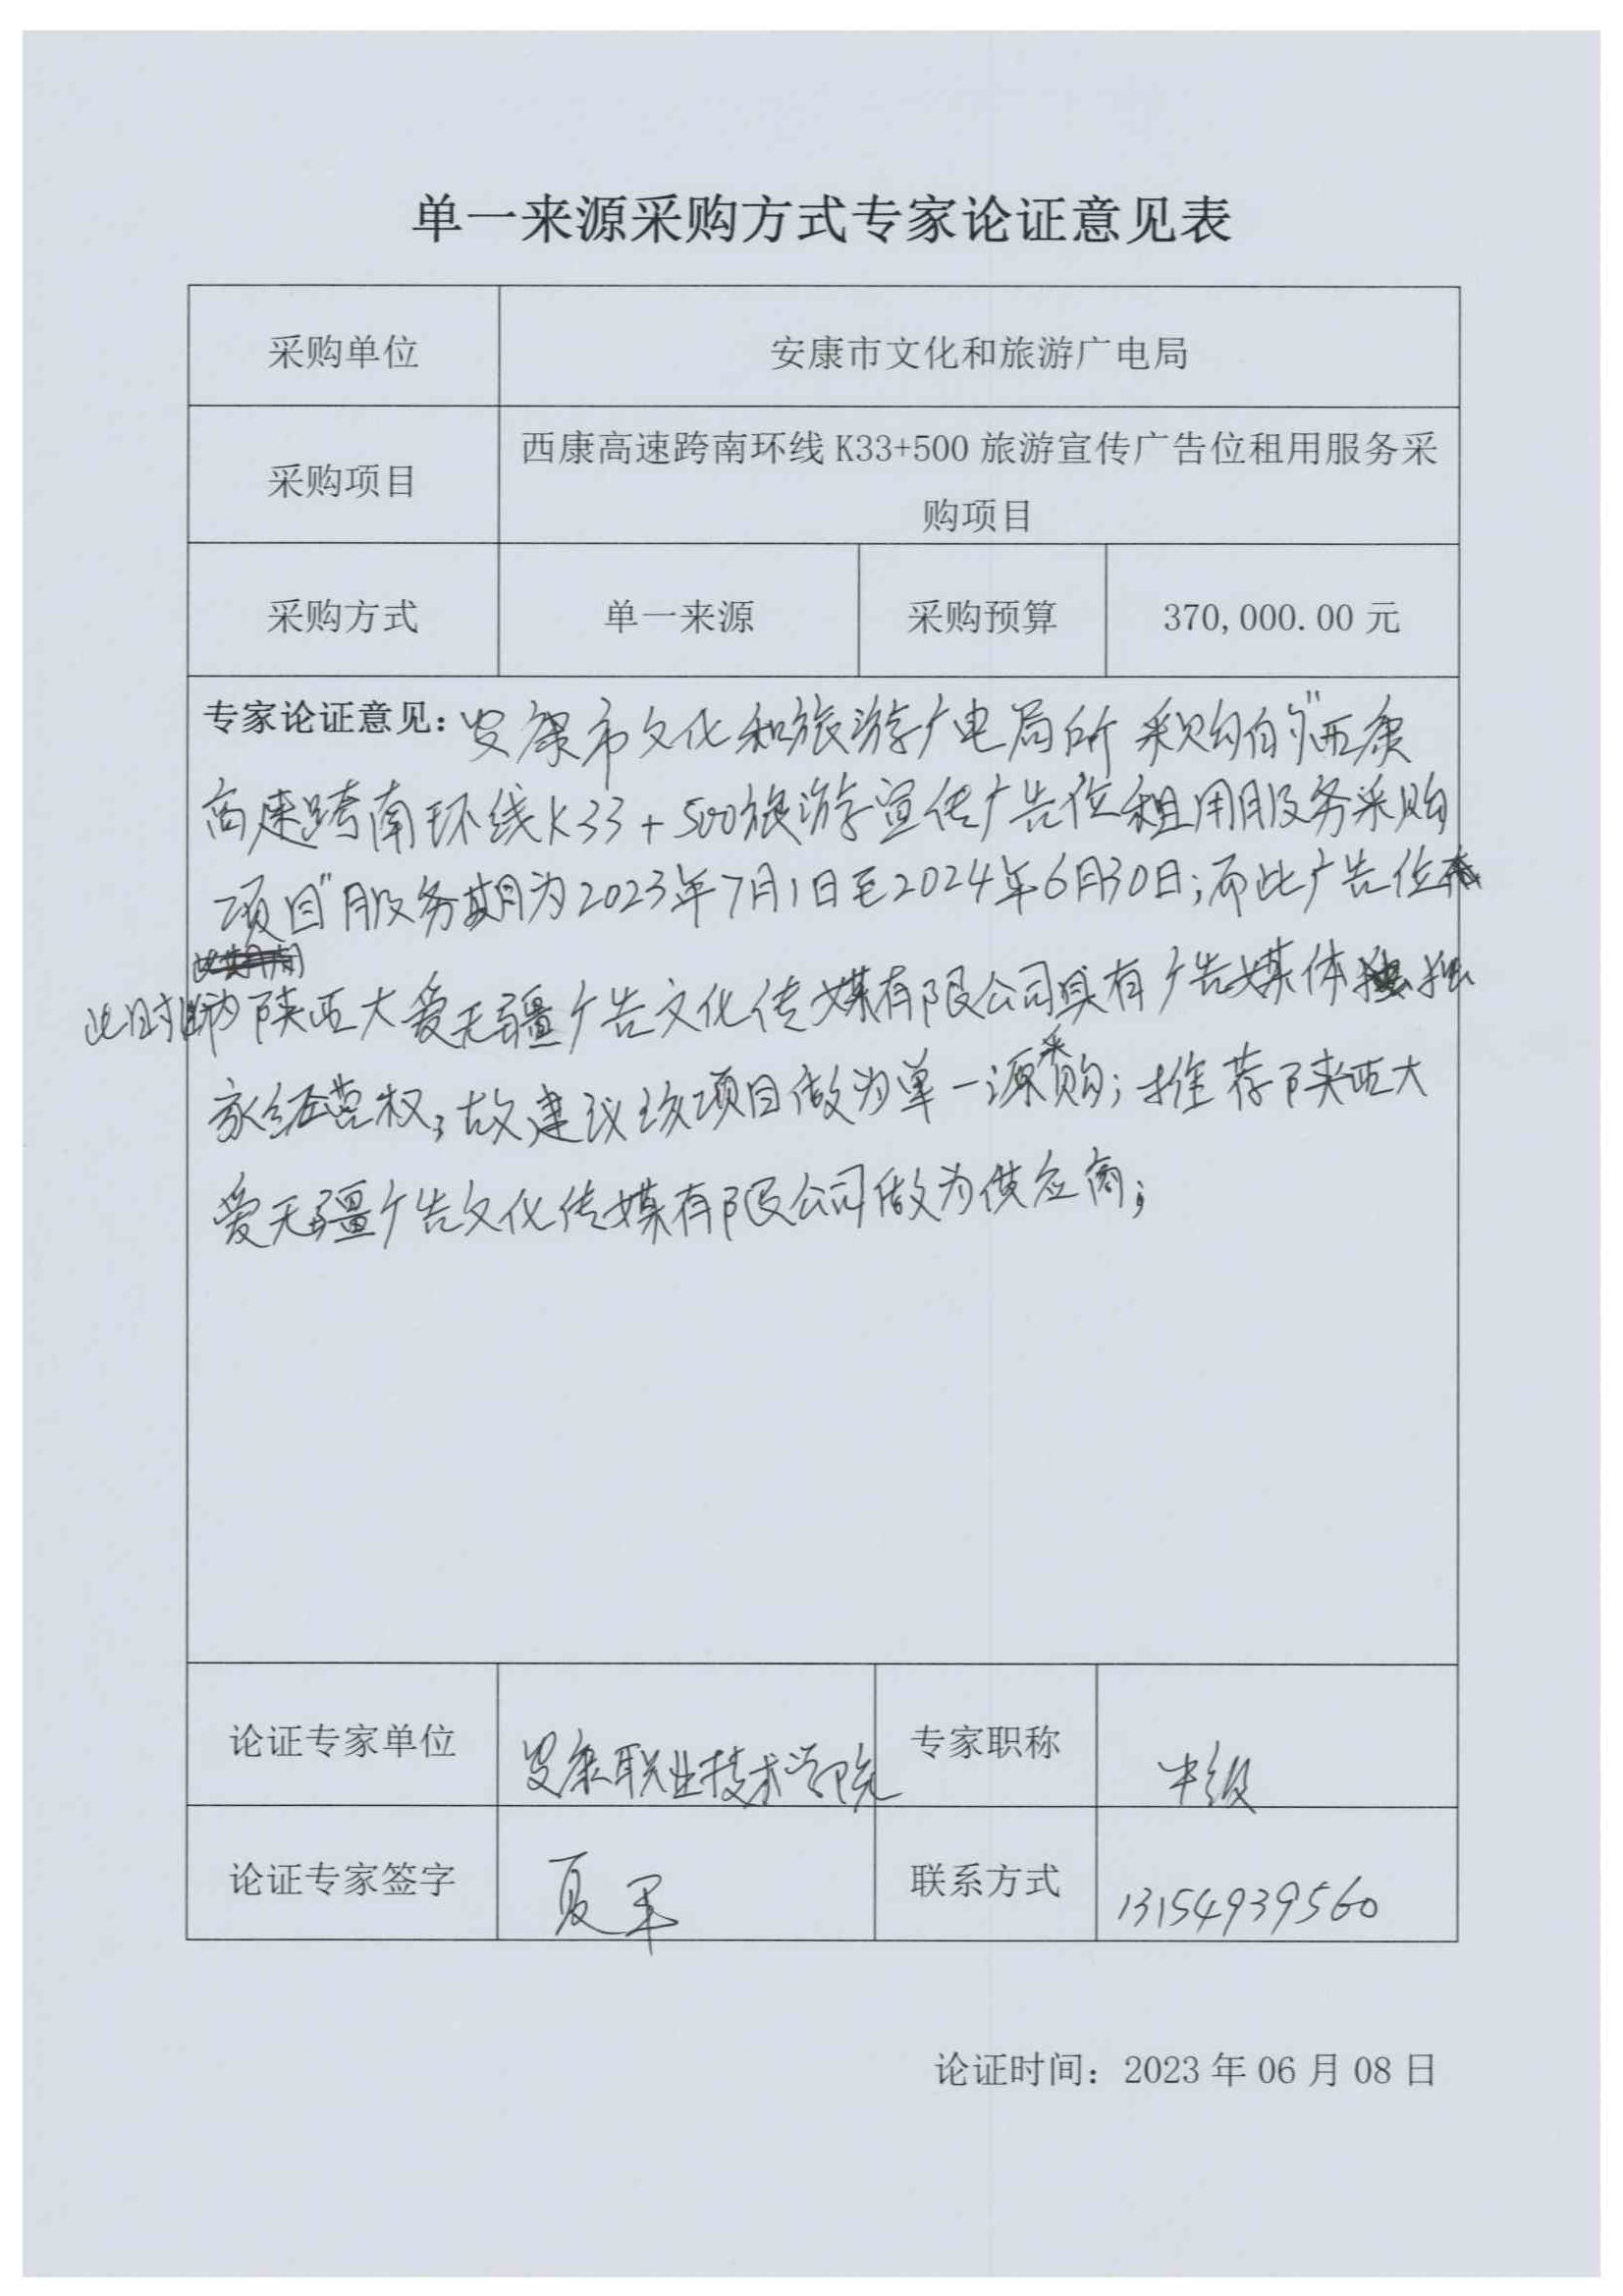 单一来源采购方式专家论证意见表
采购单位 安康市文化和旅游广电局
采购项目 西康高速跨南环线 K33+500 旅游宣传广告位租用服务采
购项目
采购方式 单一来源 采购预算 370,000.00 元
专家论证意见：安康市文化和旅游广电局所采购的"西康
高速跨南环线K33+500旅游宣传广告位租用服务采购
项目"服务期为2023年7月1日至2024年6月30日；而此广告位在
此时为陕西大爱无疆广告文化传媒有限公司具有广告媒体独
家经营权，故建议该项目做为单一源采购；推荐陕西大
爱无疆广告文化传媒有限公司做为供应商；
论证专家单位 安康职业技术学院 专家职称 中级
论证专家签字 夏军 联系方式 13154939560
论证时间：2023 年 06 月 08 日